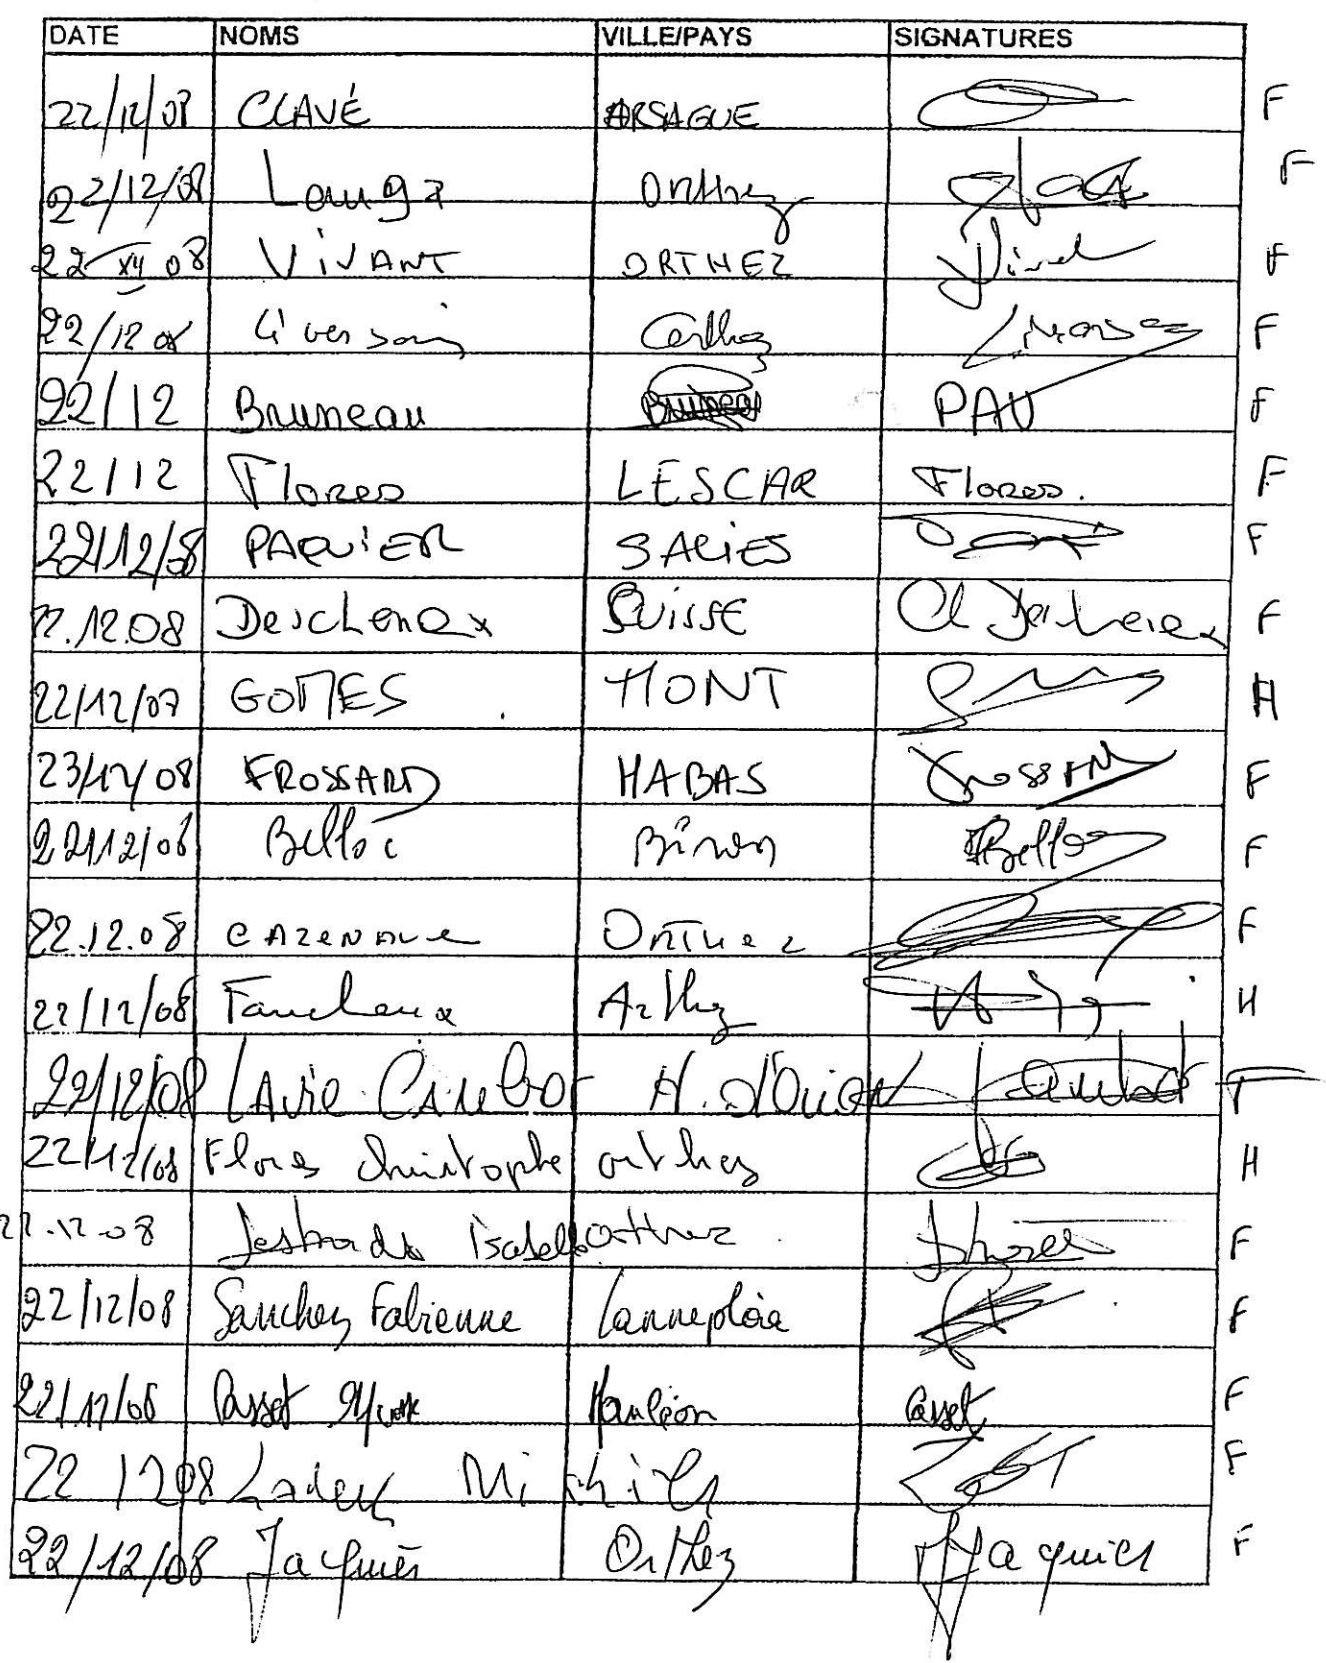 DATE NOMS VILLE/PAYS SIGNATURES
22/12/08 CLAVÉ ARSAGUE F
22/12/08 Lauga Orthez F
22 XII 08 VIVANT ORTHEZ Vivant F
22/12 08 F
22/12 Bruneau PAU F
22/12 Flores LESCAR Flores. F
22/12/08 PAQUIER SALIES F
22.12.08 Deschenaux SUISSE F
22/12/07 GOMES MONT H
23/12/08 FROSSARD HABAS Frossard F
22/12/08 Belloc Biron Belloc F
22.12.08 CAZENAVE ORTHEZ F
22/12/08 Faucheux Arthez H
22/12/08 LAVIE-CAMBOT H. F
22/12/08 Flores Christophe orthez H
22.12.08 Isabelle orthez F
22/12/08 Sanchez Fabienne Lanneplàa F
22/12/08 Casset Yvonne Mauléon Casset F
22 12 08 F
22/12/08 Jaquier Orthez Jaquier F